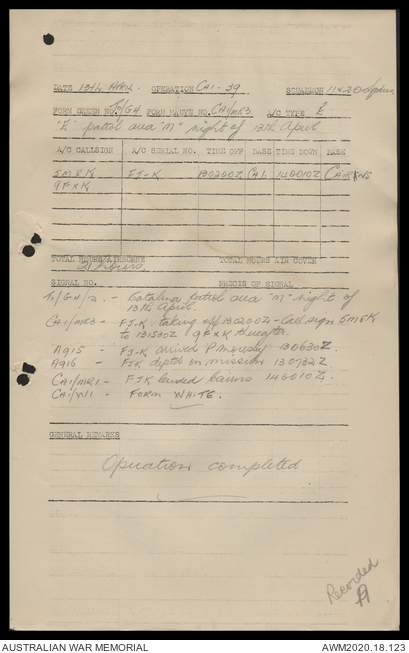 DATE 13th April OPERATION CA1-29 SQUADRON 11 & 20 Sqdns
FORM GREEN NO. To/GH FORM MAUVE NO. CA1/MR3 A/C TYPE E
"E" patrol area "M" night of 13th April
A/C CALLSIGN A/C SERIAL NO. TIME OFF BASE TIME DOWN BASE
5M8K FJ-K 130200Z CA1. 140010Z CAIRNS
9FXK
TOTAL HOURS AIRBORNE TOTAL HOURS AIR COVER
21 hours
SIGNAL NO. PRECIS OF SIGNAL
To/GH/2. - Catalina patrol area "M" night of
13th April.
CA1/MR3 - FJ-K taking off 130200Z - Callsign 5M8K
to 131530Z 9FXK thereafter.
A915 - FJ-K arrived P. Moresby 130630Z.
A916 - FJK depth on mission 130732Z.
CA1/MR1 - FJK landed Cairns 140010Z.
CA1/W1 - FORM WHITE.
GENERAL REMARKS
Operation completed
Recorded
AUSTRALIAN WAR MEMORIAL AWM2020.18.123